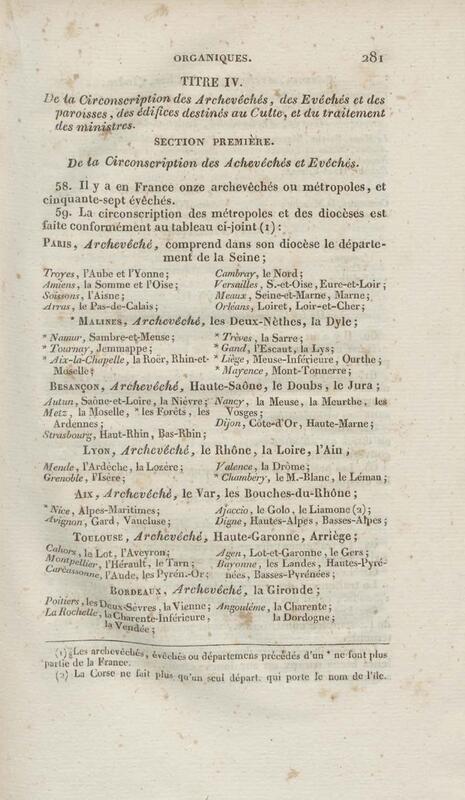 ORGANIQUES. 281
TITRE IV.
De la Circonscription des Archevêchés, des Evêchés et des
paroisses, des édifices destinés au Culte, et du traitement
des ministres.
SECTION PREMIÈRE.
De la Circonscription des Achevêchés et Evêchés.
58. Il y a en France onze archevêchés ou métropoles, et
cinquante-sept évêchés.
59. La circonscription des métropoles et des diocèses est
faite conformément au tableau ci-joint (1) :
PARIS, Archevêché, comprend dans son diocèse le départe-
ment de la Seine ;
Troyes, l'Aube et l'Yonne ;
Amiens, la Somme et l'Oise ;
Soissons, l'Aisne ;
Arras, le Pas-de-Calais ;
Cambray, le Nord ;
Versailles, S.-et-Oise, Eure-et-Loir ;
Meaux, Seine-et-Marne, Marne ;
Orléans, Loiret, Loir-et-Cher ;
* MALINES, Archevêché, les Deux-Nèthes, la Dyle ;
* Namur, Sambre-et-Meuse ;
* Tournay, Jemmappe ;
* Aix-la-Chapelle, la Roër, Rhin-et-
Moselle ;
* Trèves, la Sarre ;
* Gand, l'Escaut, la Lys ;
* Liège, Meuse-Inférieure, Ourthe ;
* Mayence, Mont-Tonnerre ;
BESANÇON, Archevêché, Haute-Saône, le Doubs, le Jura ;
Autun, Saône-et-Loire, la Nièvre ;
Metz, la Moselle, * les Forêts, les
Ardennes ;
Strasbourg, Haut-Rhin, Bas-Rhin ;
Nancy, la Meuse, la Meurthe, les
Vosges ;
Dijon, Côte-d'Or, Haute-Marne ;
LYON, Archevêché, le Rhône, la Loire, l'Ain,
Mende, l'Ardèche, la Lozère ;
Grenoble, l'Isère ;
Valence, la Drôme ;
* Chambéry, le M.-Blanc, le Léman ;
AIX, Archevêché, le Var, les Bouches-du-Rhône ;
* Nice, Alpes-Maritimes ;
Avignon, Gard, Vaucluse ;
Ajaccio, le Golo, le Liamone (2) ;
Digne, Hautes-Alpes, Basses-Alpes ;
TOULOUSE, Archevêché, Haute-Garonne, Arriège ;
Cahors, la Lot, l'Aveyron ;
Montpellier, l'Hérault, le Tarn ;
Carcassonne, l'Aude, les Pyrén.-Or ;
Agen, Lot-et-Garonne, le Gers ;
Bayonne, les Landes, Hautes-Pyré-
nées, Basses-Pyrénées ;
BORDEAUX, Archevêché, la Gironde ;
Poitiers, les Deux-Sèvres, la Vienne ;
La Rochelle, la Charente-Inférieure,
la Vendée ;
Angoulême, la Charente ;
la Dordogne ;
(1) Les archevêchés, évêchés ou départemens précédés d'un * ne font plus
partie de la France.
(2) La Corse ne fait plus qu'un seul départ. qui porte le nom de l'île.